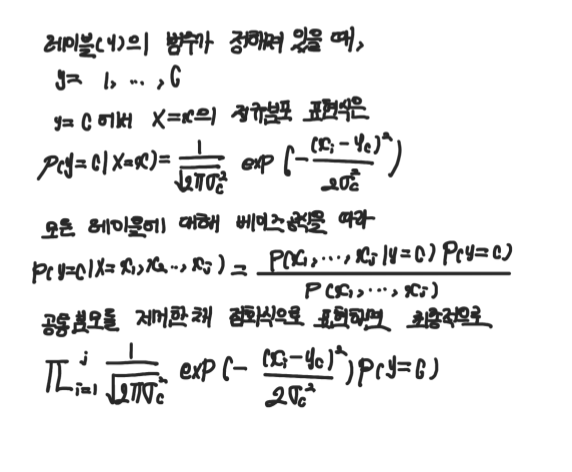 레이블(y)의 범주가 정해져 있을 때,
y= 1, ..., C
y= C 에서 X=x의 정규분포 표현식은
P(y=C|X=x)= \frac{1}{\sqrt{2πσ_c^2}} exp(-\frac{(x_i-y_c)^2}{2σ_c^2})
모든 레이블에 대해 베이즈공식을 따라
P(y=C|X=x_1,x_2..,x_j) = \frac{P(x_1,...,x_j|y=C)P(y=C)}{P(x_1,...,x_j)}
공통분모를 제거한 채 점화식으로 표현하면 최종적으로
∏_{i=1}^{j} \frac{1}{\sqrt{2πσ_c^2}} exp(-\frac{(x_i-y_c)^2}{2σ_c^2})P(y=C)